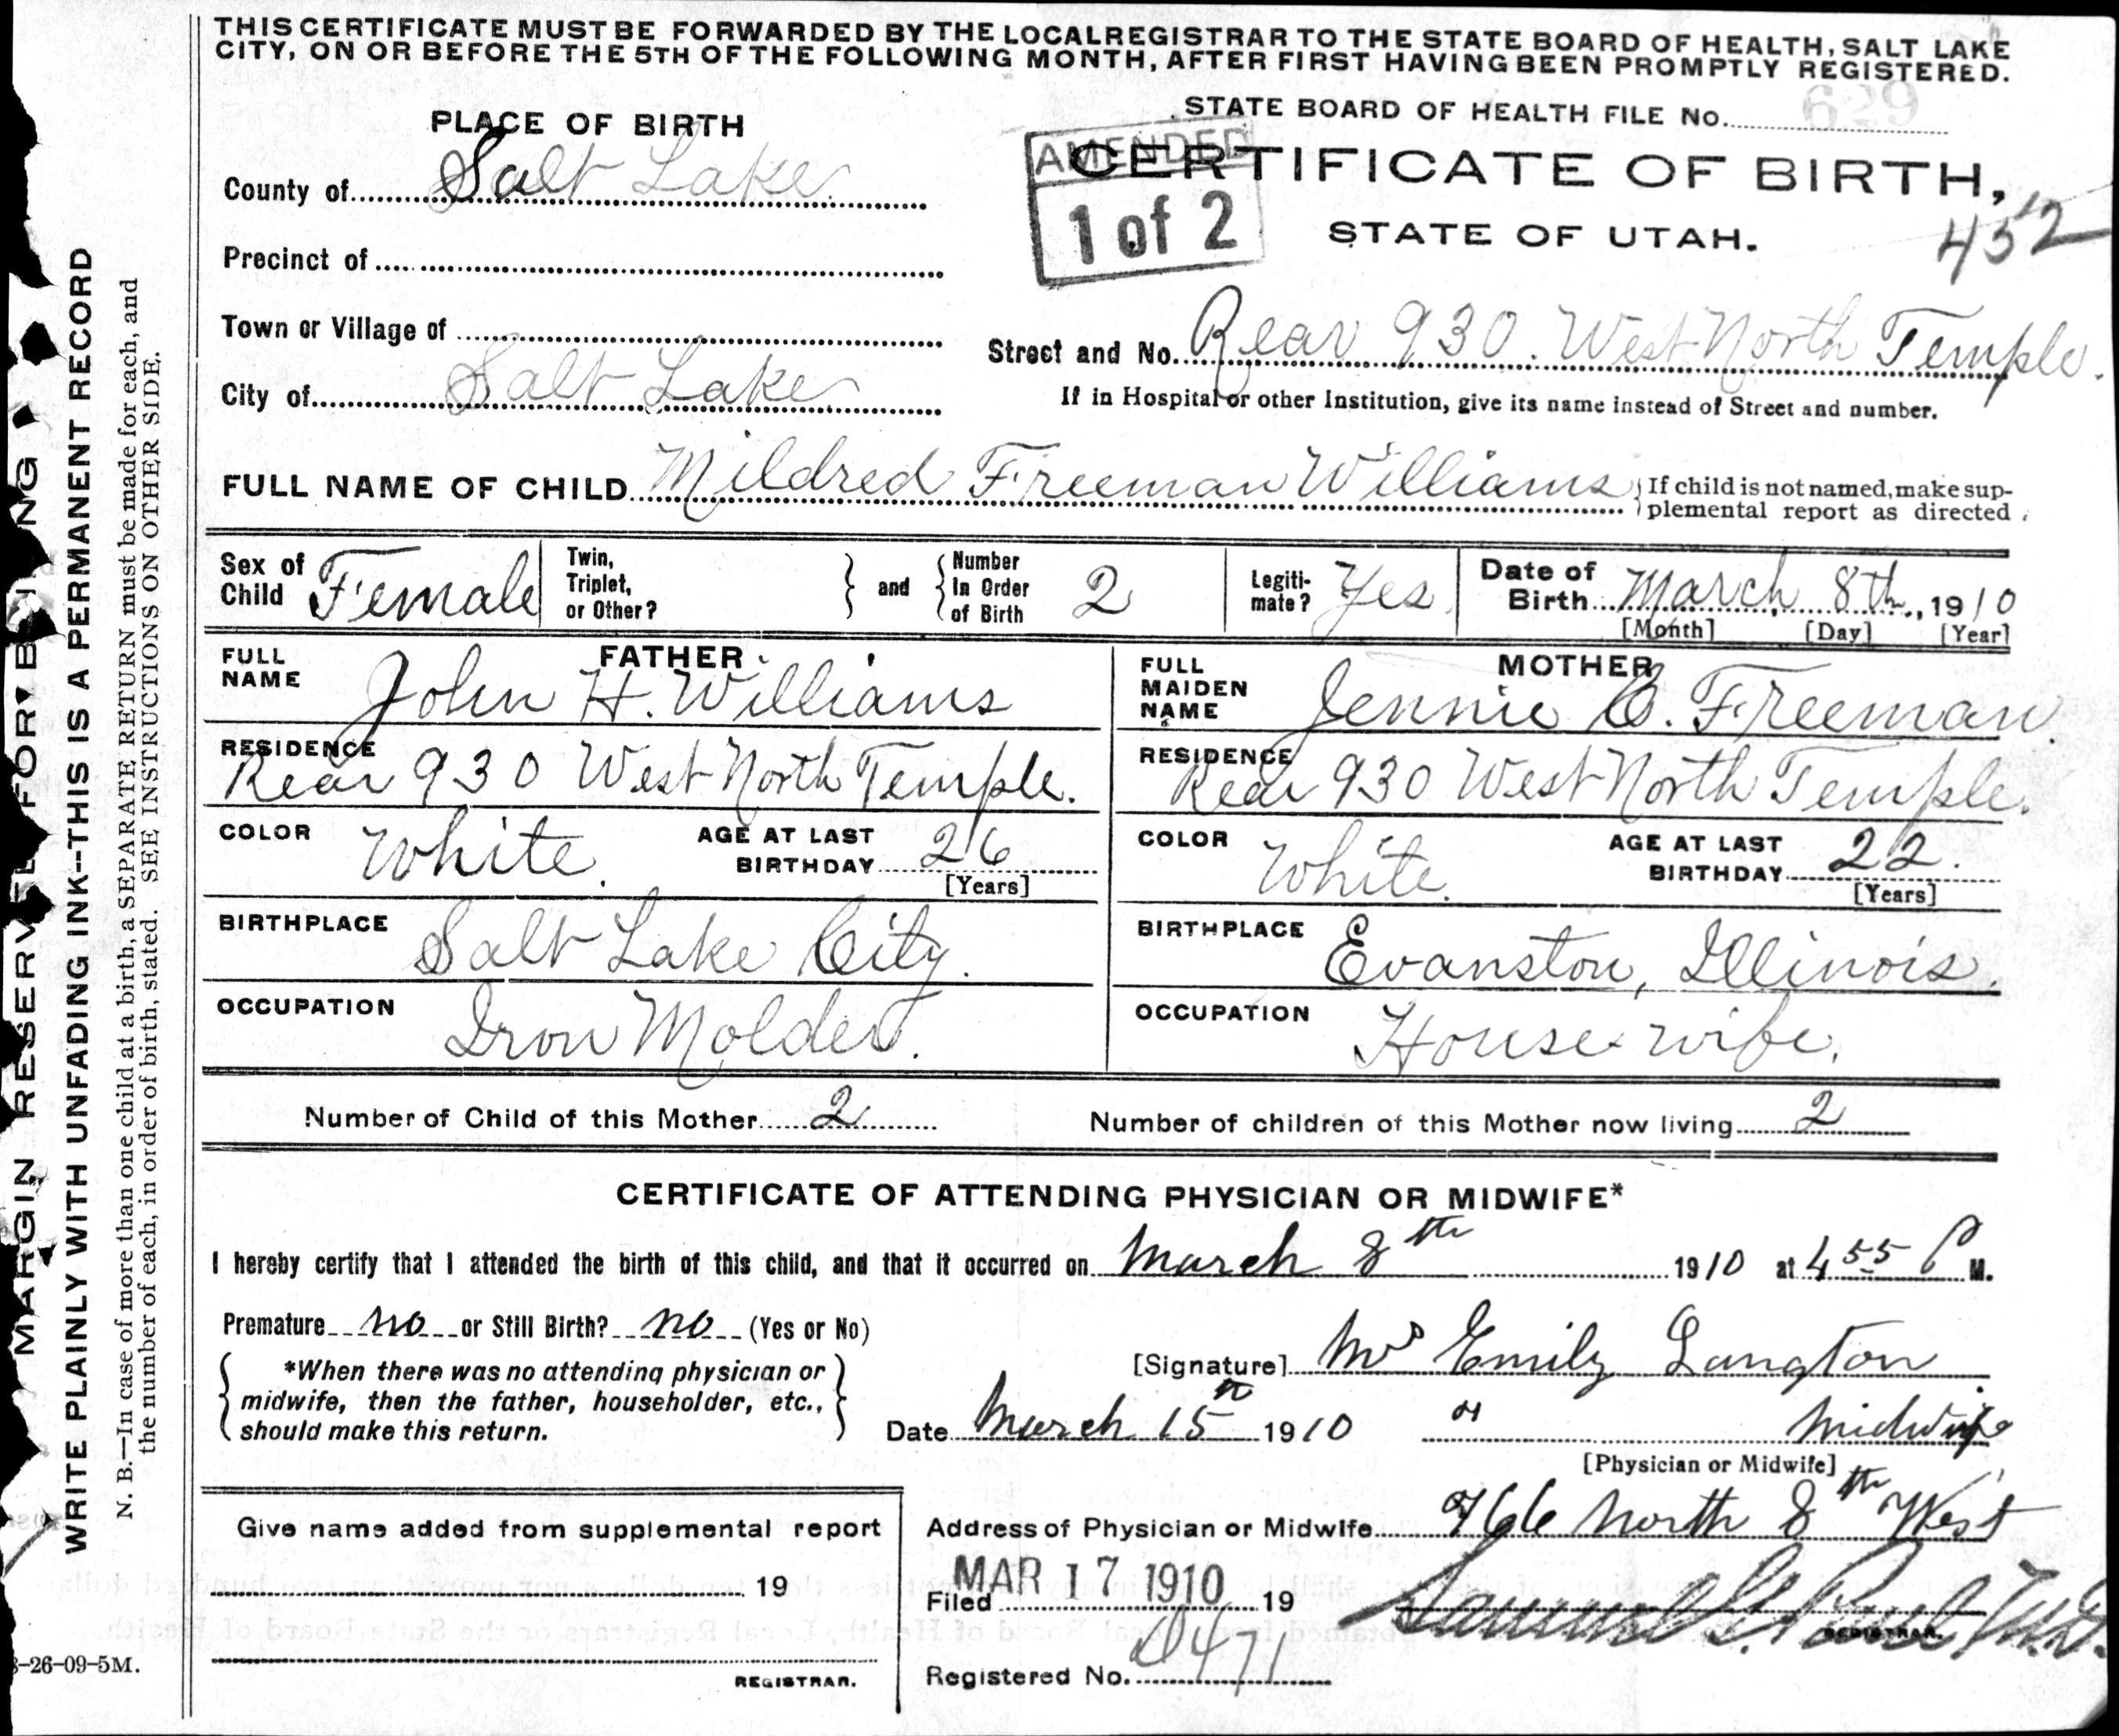 THIS CERTIFICATE MUST BE FORWARDED BY THE LOCAL REGISTRAR TO THE STATE BOARD OF HEALTH, SALT LAKE
CITY, ON OR BEFORE THE 5TH OF THE FOLLOWING MONTH, AFTER FIRST HAVING BEEN PROMPTLY REGISTERED.
STATE BOARD OF HEALTH FILE No. 629
PLACE OF BIRTH
AMENDED
1 of 2
CERTIFICATE OF BIRTH,
STATE OF UTAH.
452
County of Salt Lake
Precinct of
Town or Village of
Street and No. Rear 930. West North Temple.
City of Salt Lake
If in Hospital or other Institution, give its name instead of Street and number.
FULL NAME OF CHILD Mildred Freeman Williams
If child is not named, make sup-
plemental report as directed
Sex of Child Female
Twin, Triplet, or Other?
and
Number In Order of Birth 2
Legiti-mate? Yes
Date of Birth March 8th, 1910
[Month] [Day] [Year]
FATHER
FULL NAME John H. Williams
MOTHER
FULL MAIDEN NAME Jennie C. Freeman.
RESIDENCE Rear 930 West North Temple.
RESIDENCE Rear 930 West North Temple.
COLOR White. AGE AT LAST BIRTHDAY 26 [Years]
COLOR White. AGE AT LAST BIRTHDAY 22. [Years]
BIRTHPLACE Salt Lake City.
BIRTHPLACE Evanston, Illinois.
OCCUPATION Iron Molder.
OCCUPATION House-wife.
Number of Child of this Mother 2 Number of children of this Mother now living 2
CERTIFICATE OF ATTENDING PHYSICIAN OR MIDWIFE*
I hereby certify that I attended the birth of this child, and that it occurred on March 8th 1910 at 4 55 P M.
Premature no or Still Birth? no (Yes or No)
*When there was no attending physician or
midwife, then the father, householder, etc.,
should make this return.
[Signature] Mrs Emily Langton
Date March 15th 1910 Midwife
[Physician or Midwife]
Address of Physician or Midwife 766 North 8th West
Give name added from supplemental report
19
REGISTRAR.
MAR 17 1910
Filed 19
Samuel G. Paul M.D.
REGISTRAR.
Registered No. 2471
3-26-09-5M.
MARGIN RESERVED FOR BINDING
WRITE PLAINLY WITH UNFADING INK--THIS IS A PERMANENT RECORD
N. B.—In case of more than one child at a birth, a SEPARATE RETURN must be made for each, and
the number of each, in order of birth, stated. SEE INSTRUCTIONS ON OTHER SIDE.